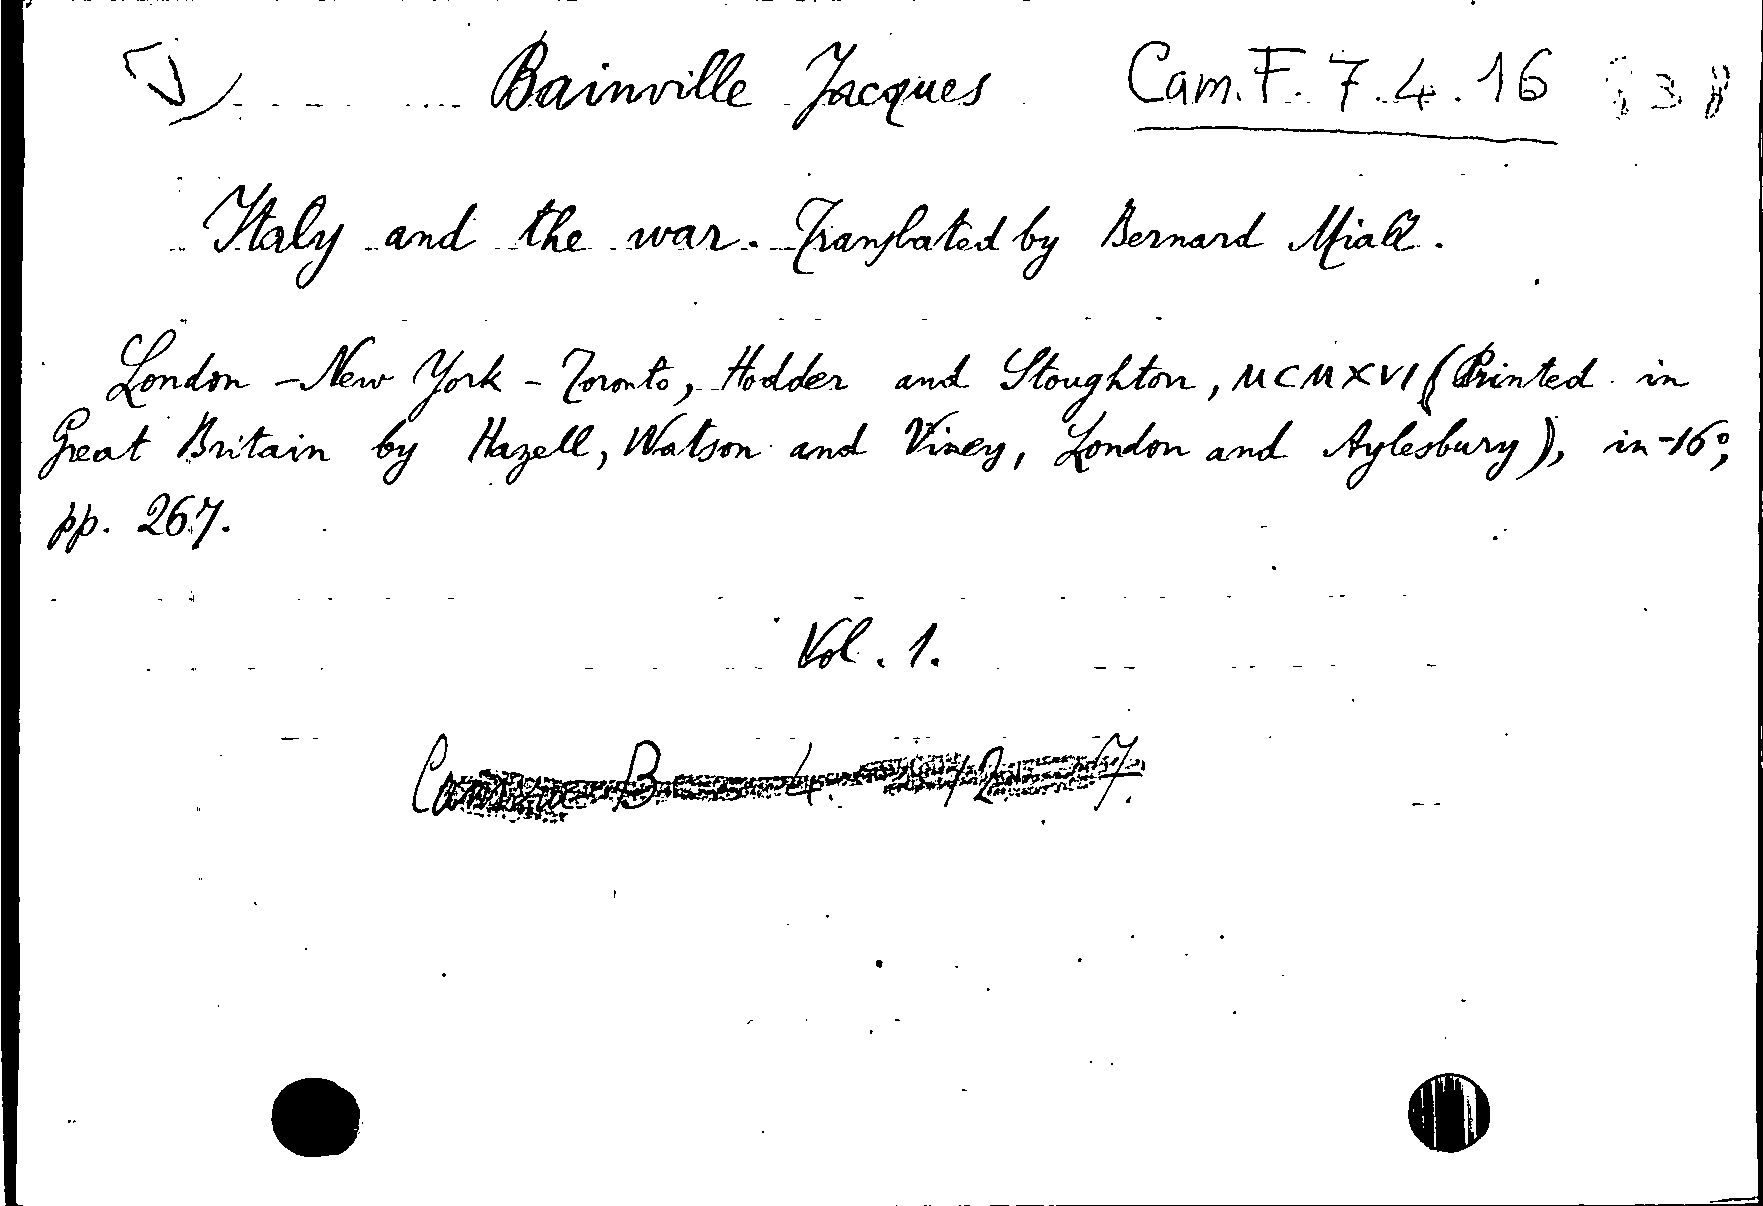 Bainville Jacques Cam. F. 7. 4. 16
Italy and the war. Translated by Bernard Miall.
London - New York - Toronto, Hodder and Stoughton, MCMXVI (Printed in
Great Britain by Hazell, Watson and Viney, London and Aylesbury), in-16°,
pp. 267.
Vol. 1.